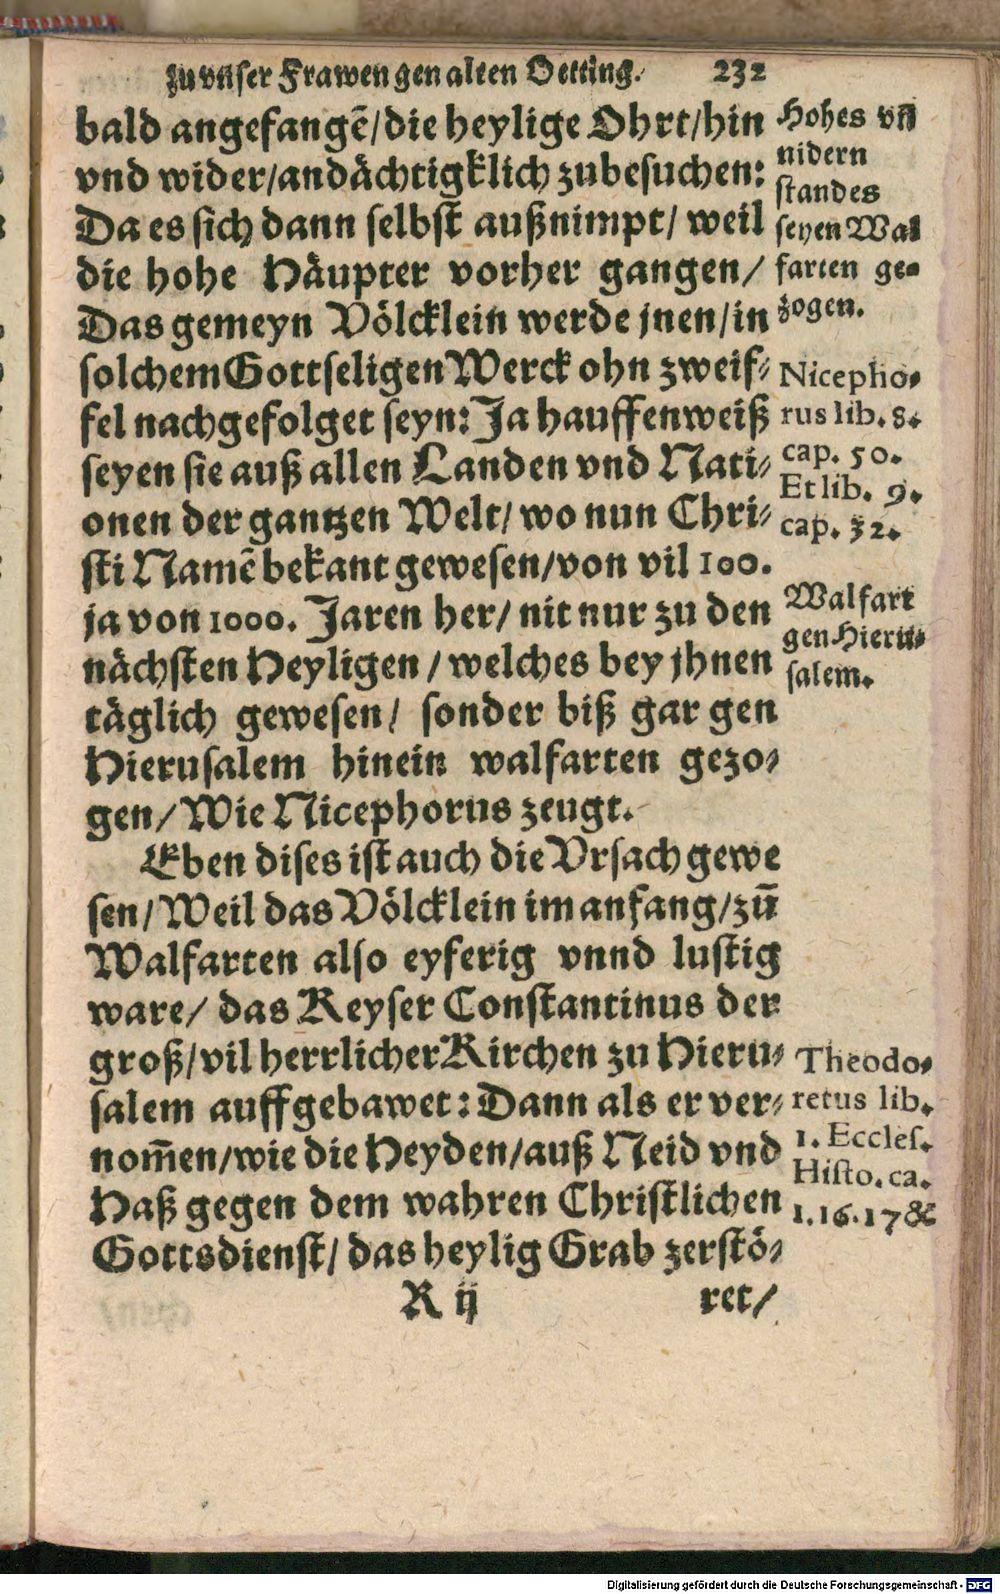 zu vnser Frawen gen alten Oetting. 232
bald angefangē/die heylige Ohrt/hin
vnd wider/andächtigklich zubesuchen:
Da es sich dann selbst außnimpt/ weil
die hohe Häupter vorher gangen/
Das gemeyn Völcklein werde jnen/in
solchem Gottseligen Werck ohn zweif-
fel nachgefolget seyn: Ja hauffenweiß
seyen sie auß allen Landen vnd Nati-
onen der gantzen Welt/ wo nun Chri-
sti Namē bekant gewesen/von vil 100.
ja von 1000. Jaren her/ nit nur zu den
nächsten Heyligen/ welches bey jhnen
täglich gewesen/ sonder biß gar gen
Hierusalem hinein walfarten gezo-
gen/ Wie Nicephorus zeugt.
Eben dises ist auch die Vrsach gewe
sen/ Weil das Völcklein im anfang/zū
Walfarten also eyferig vnnd lustig
ware/ das Keyser Constantinus der
groß/vil herrlicher Kirchen zu Hieru-
salem auffgebawet: Dann als er ver-
nom̄en/wie die Heyden/auß Neid vnd
Haß gegen dem wahren Christlichen
Gottsdienst/ das heylig Grab zerstö-
K ij ret/
Hohes vn̄
nidern
standes
seyen Wal
farten ge-
zogen.
Nicepho-
rus lib. 8.
cap. 50.
Et lib. 9.
cap. 32.
Walfart
gen Hieru-
salem.
Theodo-
retus lib.
1. Eccles.
Histo. ca.
1. 16. 17 &
Digitalisierung gefördert durch die Deutsche Forschungsgemeinschaft - DFG